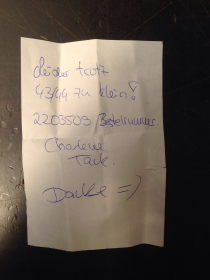 Leider trotz
43/44 zu klein!
2203503 Bestellnummer.
Charlene
Tark.
Danke =)